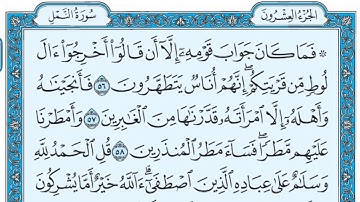 الجُزْءُ العِشْرُونَ
سُورَةُ النَّمْلِ
۞ فَمَا كَانَ جَوَابَ قَوْمِهِۦٓ إِلَّآ أَن قَالُوٓا۟ أَخْرِجُوٓا۟ ءَالَ
لُوطٍ مِّن قَرْيَتِكُمْ ۖ إِنَّهُمْ أُنَاسٌ يَتَطَهَّرُونَ ٥٦ فَأَنجَيْنَٰهُ
وَأَهْلَهُۥٓ إِلَّا ٱمْرَأَتَهُۥ قَدَّرْنَٰهَا مِنَ ٱلْغَٰبِرِينَ ٥٧ وَأَمْطَرْنَا
عَلَيْهِم مَّطَرًا ۖ فَسَآءَ مَطَرُ ٱلْمُنذَرِينَ ٥٨ قُلِ ٱلْحَمْدُ لِلَّهِ
وَسَلَٰمٌ عَلَىٰ عِبَادِهِ ٱلَّذِينَ ٱصْطَفَىٰٓ ۗ ءَآللَّهُ خَيْرٌ أَمَّا يُشْرِكُونَ